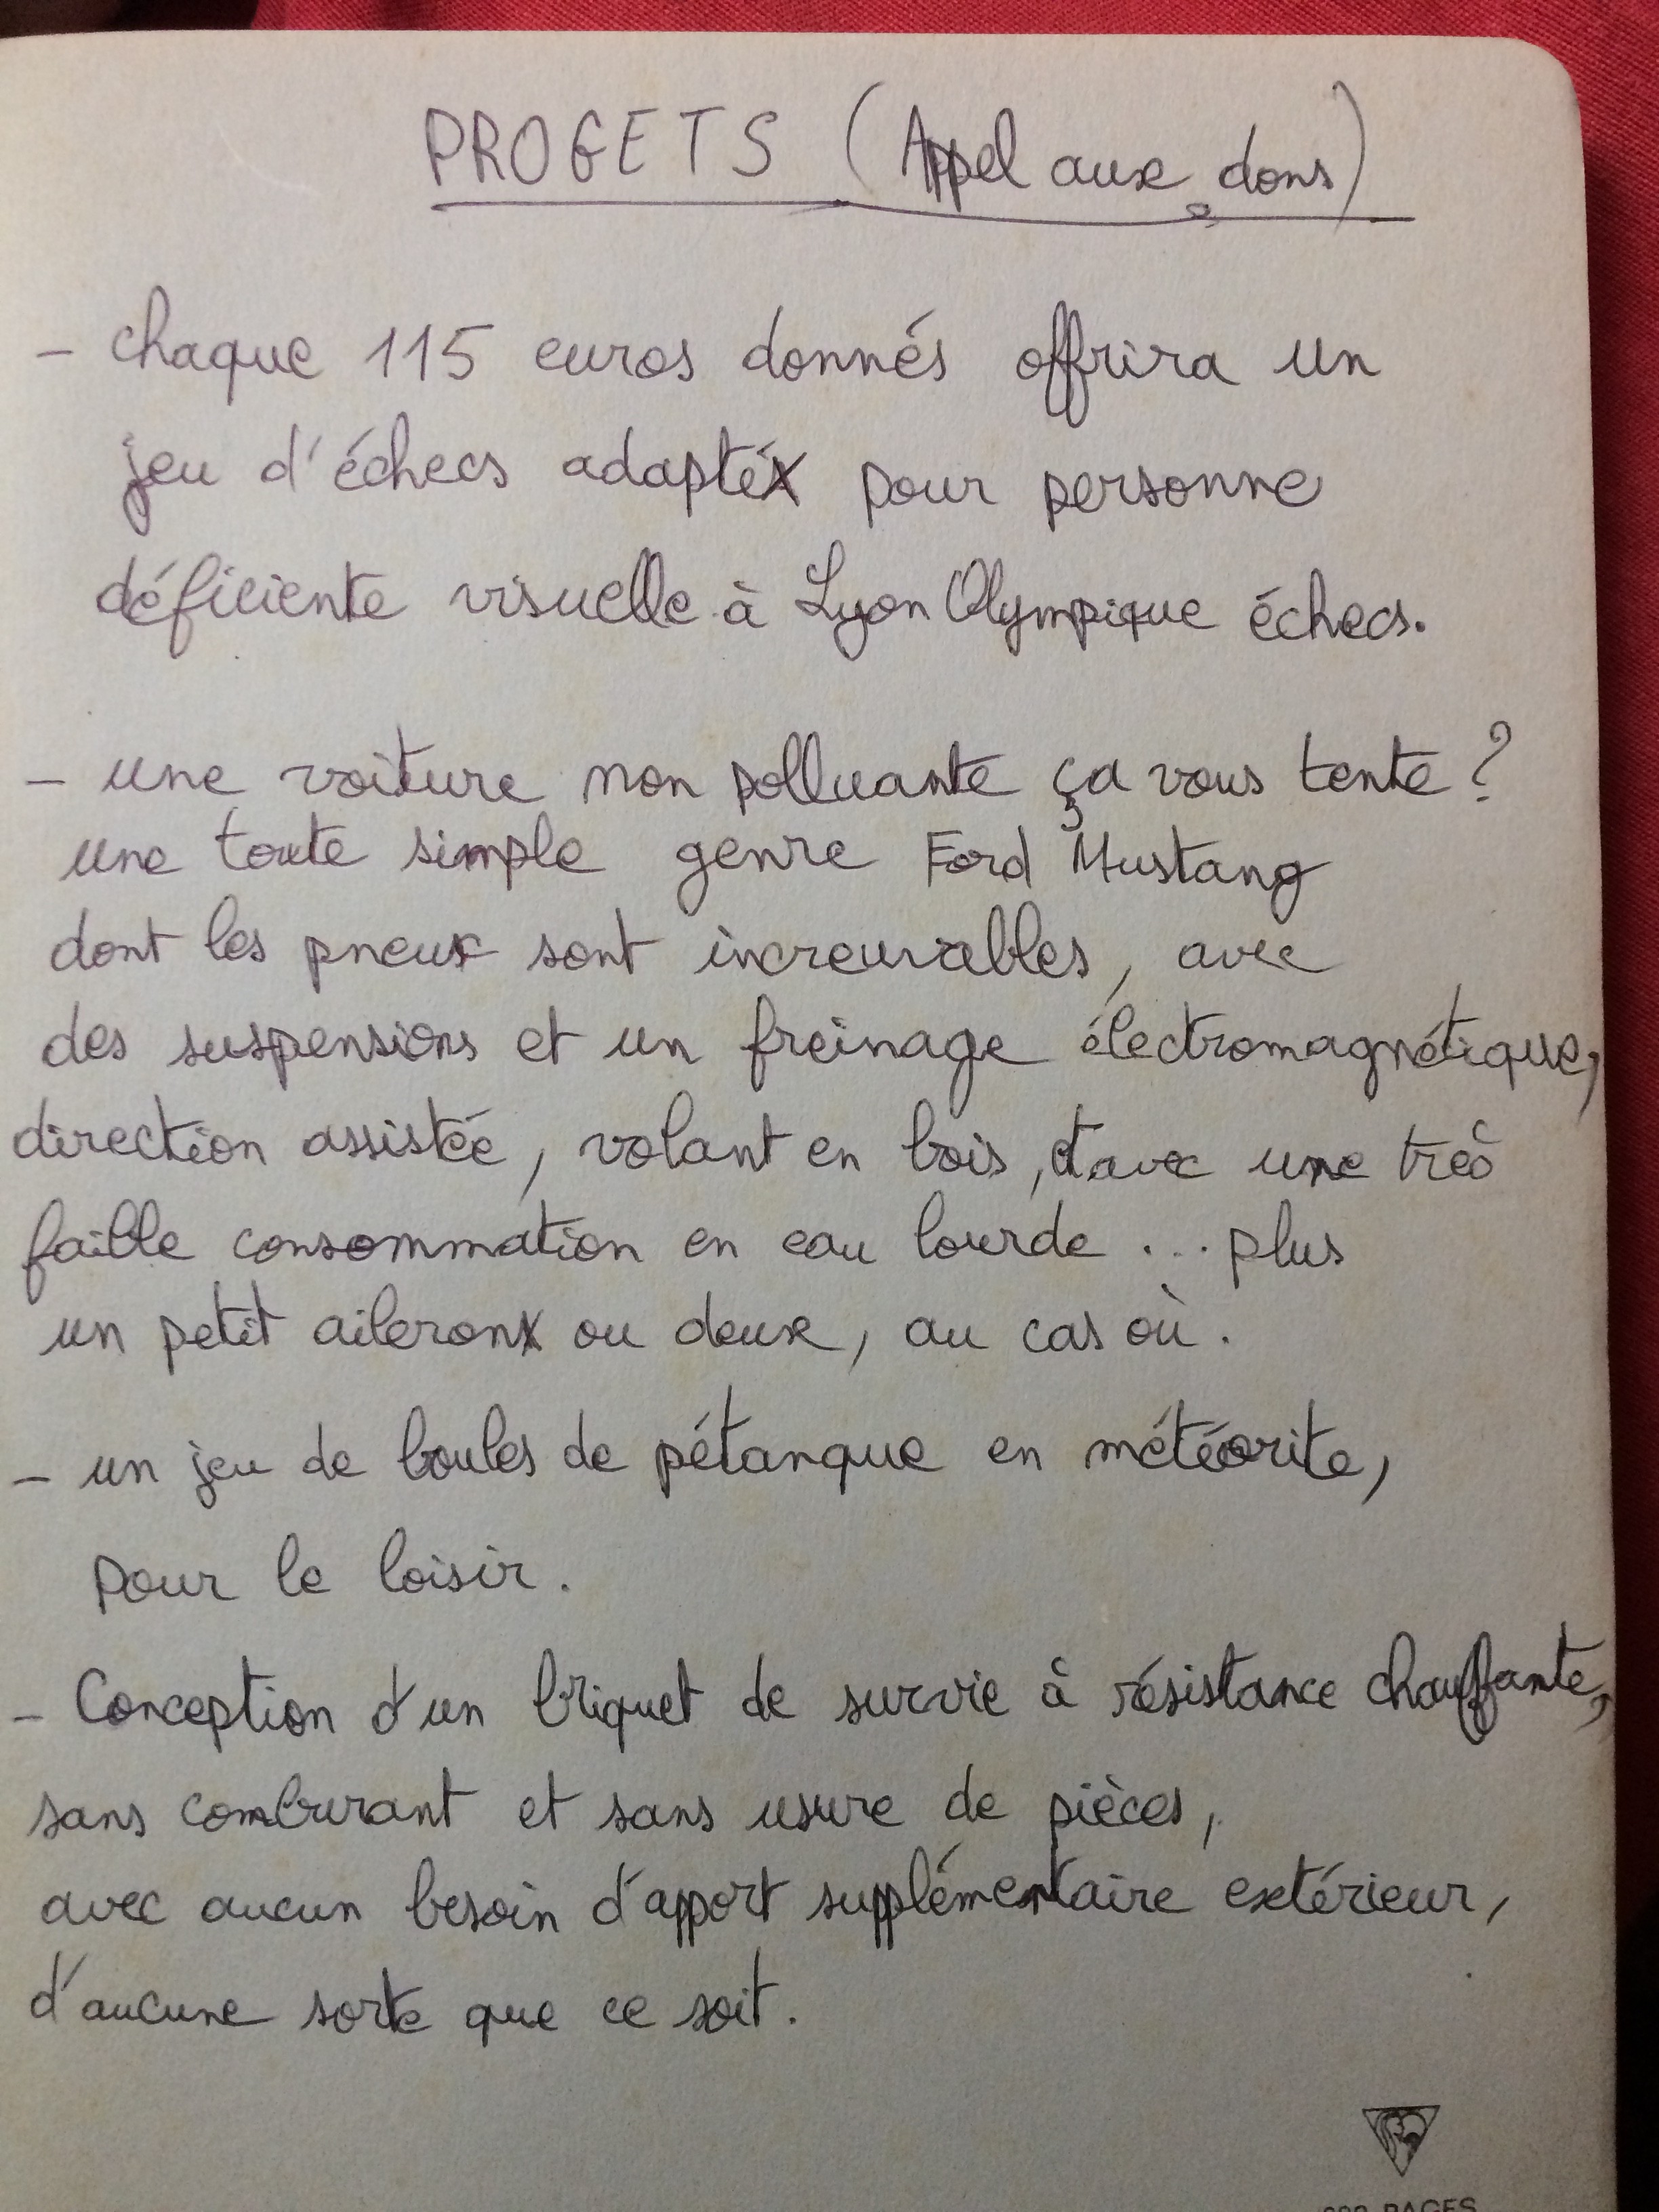 PROGETS (Appel aux dons)
- chaque 115 euros donnés offrira un
jeu d'échecs adapté pour personne
déficiente visuelle à Lyon Olympique échecs.
- une voiture non polluante ça vous tente ?
une toute simple genre Ford Mustang
dont les pneus sont increuvables, avec
des suspensions et un freinage électromagnétique,
direction assistée, volant en bois, et avec une très
faible consommation en eau lourde ... plus
un petit aileron ou deux, au cas où.
- un jeu de boules de pétanque en météorite,
pour le loisir.
- Conception d'un briquet de survie à résistance chauffante,
sans comburant et sans usure de pièces,
avec aucun besoin d'apport supplémentaire extérieur,
d'aucune sorte que ce soit.
PAGES